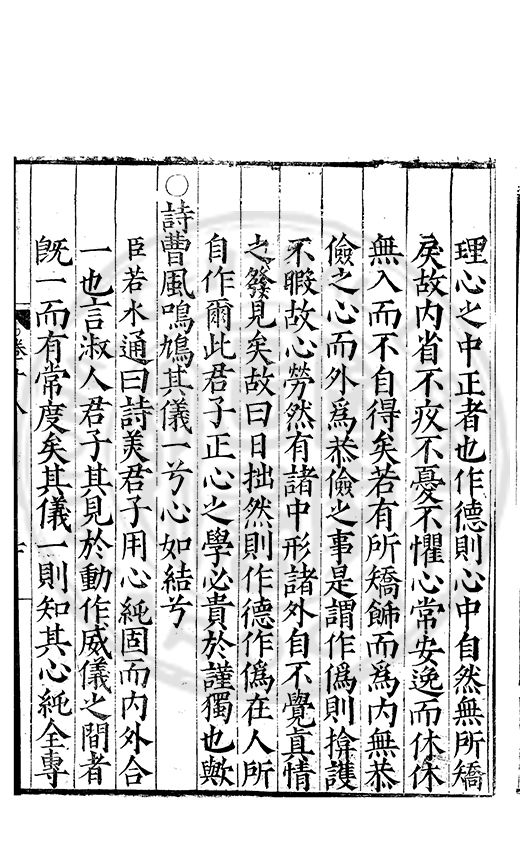 理心之中正者也作德則心中自然無所矯
戾故内省不疚不憂不懼心常安逸而休休
無入而不自得矣若有所矯飾而爲内無恭
儉之心而外爲恭儉之事是謂作僞則揜護
不暇故心勞然有諸中形諸外自不覺真情
之發見矣故曰日拙然則作德作僞在人所
自作爾此君子正心之學必貴於謹獨也歟
○詩曹風鳴鳩其儀一兮心如結兮
臣若水通曰詩美君子用心純固而内外合
一也言淑人君子其見於動作威儀之間者
旣一而有常度矣其儀一則知其心純全專
卷十八